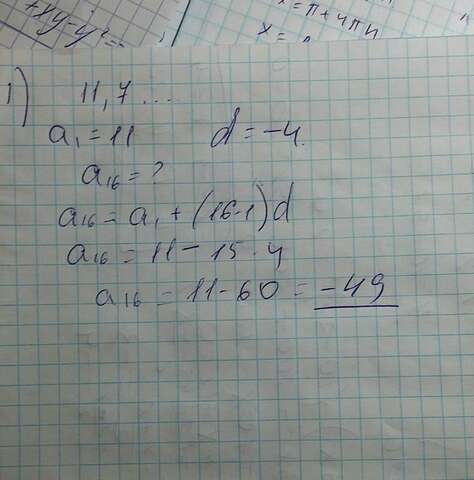 +xy-y²=
x=π+4πn
x=
1) 11, 7 ...
a₁ = 11 d = -4.
a₁₆ = ?
a₁₆ = a₁ + (16-1)d
a₁₆ = 11 - 15 · 4
a₁₆ = 11 - 60 = -49